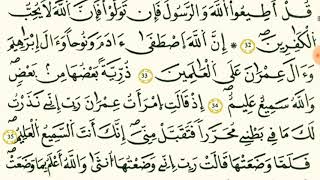 قُلَ اَطِيعُواْ اُللَّهَ وَالرَّسُولَ فَإِن تَوَلَّوْاْ فَإِنَّ اَللَّهَ لَا يُحِبُّ
اُلْكٰفِرِينَۖ 32 ۞ إِنَّ اَللَّهَ اَصْطَفَىٰٓ ءَادَمَ وَنُوحاً وَءَالَ إِبْرَٰهِيمَ
وَءَالَ عِمْرَٰنَ عَلَى اَلْعَٰلَمِينَ 33 ذُرِّيَّةَۢ بَعْضُهَا مِنۢ بَعْضٖۖ
وَاللَّهُ سَمِيعٌ عَلِيمٌۖ 34 إِذْ قَالَتِ اِمْرَأَتُ عِمْرَٰنَ رَبِّ إِنِّے نَذَرْتُ
لَكَ مَا فِے بَطْنِے مُحَرَّراً فَتَقَبَّلْ مِنِّيَۖ إِنَّكَ أَنتَ اَلسَّمِيعُ اُلْعَلِيمُۖ 35
فَلَمَّا وَضَعَتْهَا قَالَتْ رَبِّ إِنِّے وَضَعْتُهَآ أُنثَىٰ وَاللَّهُ أَعْلَمُ بِمَا وَضَعَتْ